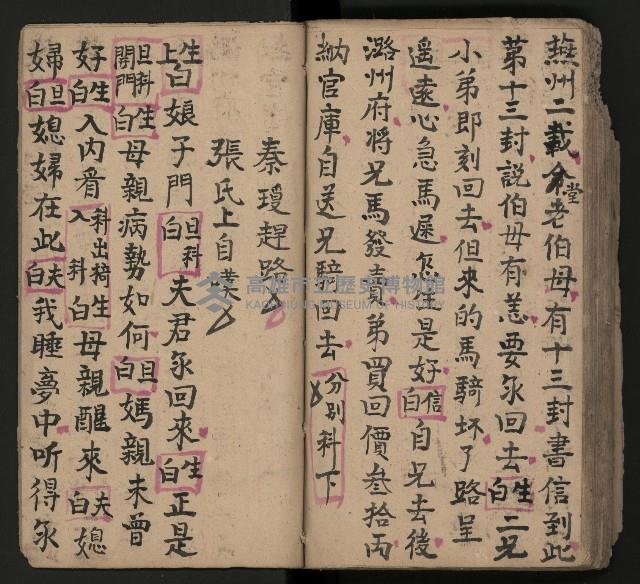 燕州二載分堂老伯母有十三封書信到此
第十三封説伯母有恙要尔回去生白二兄
小弟即刻回去但來的馬騎坏了路呈
遥遠心急馬遲怎生是好信白自兄去後
潞州府将兄馬發賣弟買回價叁拾両
納官庫自送兄騎回去分別科下
秦瓊趕路
張氏上自嘆
生上白娘子門旦科白夫君尔回來生白正是
旦科開門生白母親病勢如何旦白媽親未曾
好生白入内看科出椅入科生白母親醒來夫白媳
婦旦白媳婦在此夫白我睡夢中听得尔
高雄市立歷史博物館
KAOHSIUNG MUSEUM OF HISTORY